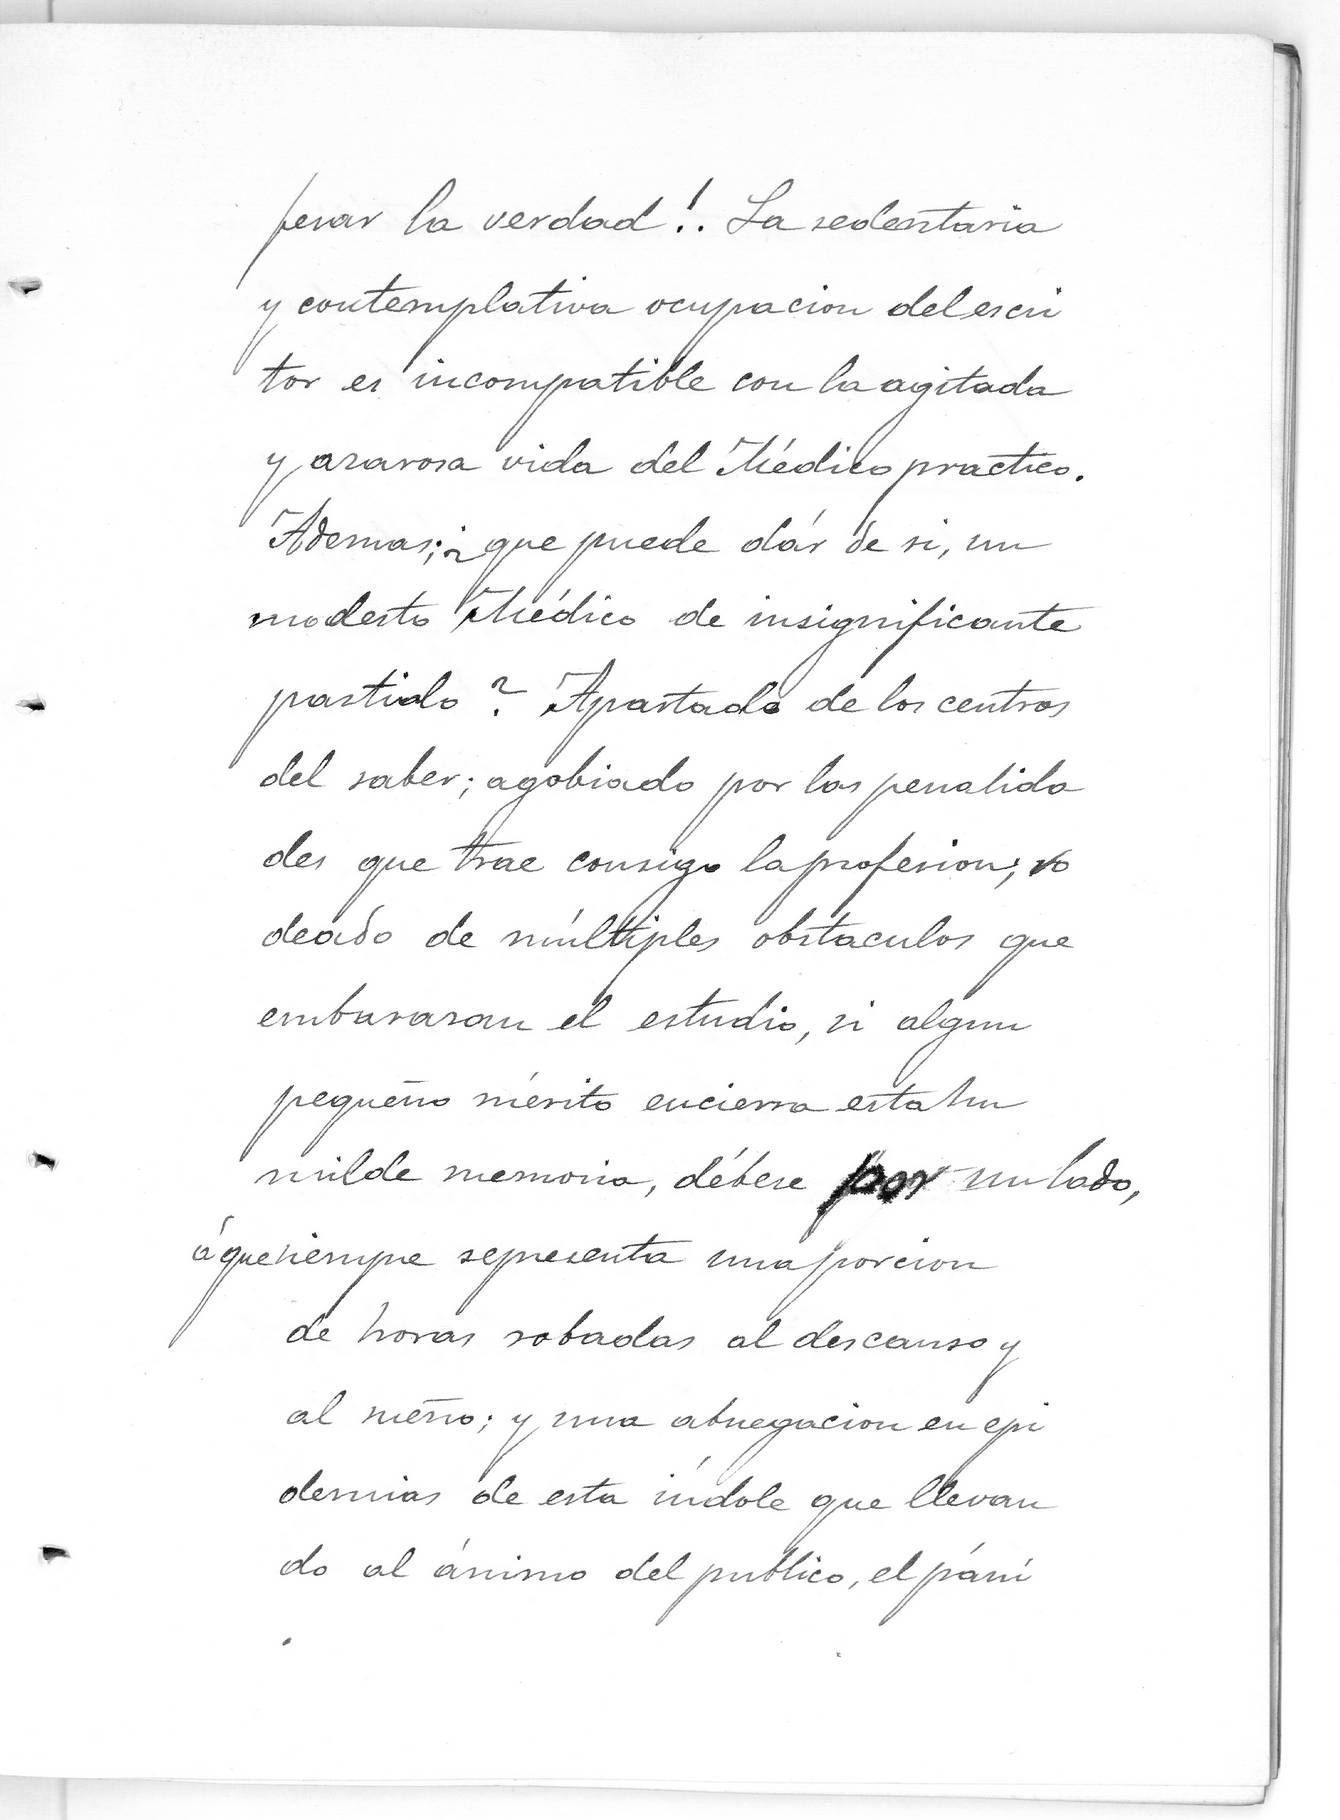 pesar la verdad!. La sedentaria
y contemplativa ocupacion del escri
tor es incompatible con la agitada
y azarosa vida del Médico practico.
Ademas; ¿que puede dár de si, un
modesto Médico de insignificante
partido? Apartado de los centros
del saber; agobiado por las penalida
des que trae consigo la profesion; ro
deado de múltiples obstaculos que
embarazan el estudio, si algun
pequeño mérito encierra esta hu
milde memoria, débese por un lado,
á que siempre representa una porcion
de horas robadas al descanso y
al sueño; y una abnegacion en epi
demias de esta índole que llevan
do al ánimo del publico, el páni